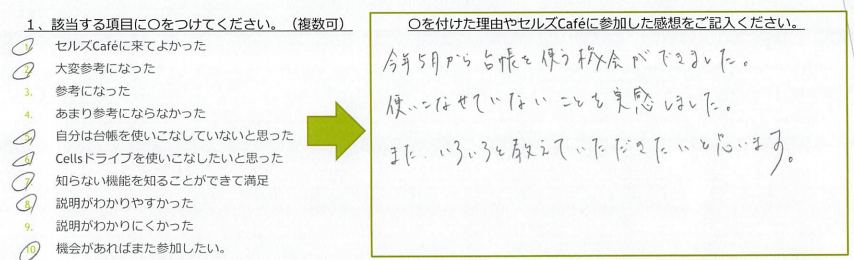 １、該当する項目に〇をつけてください。（複数可）
1. セルズCaféに来てよかった
2. 大変参考になった
3. 参考になった
4. あまり参考にならなかった
5. 自分は台帳を使いこなしていないと思った
6. Cellsドライブを使いこなしたいと思った
7. 知らない機能を知ることができて満足
8. 説明がわかりやすかった
9. 説明がわかりにくかった
10. 機会があればまた参加したい。
〇を付けた理由やセルズCaféに参加した感想をご記入ください。
今年5月から台帳を使う機会ができました。
使いこなせていないことを実感しました。
また、いろいろと教えていただきたいと思います。